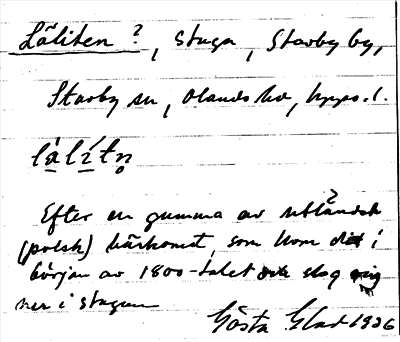 Läliten ?, stuga, Starby by,
Starby sn, Olands hd, Upps. l.
lálítn̥
Efter en gumma av utländsk ?
(polsk) härkomst, som kom dit i
början av 1800-talet och slog sig
ner i stugan
Gösta Glad 1926